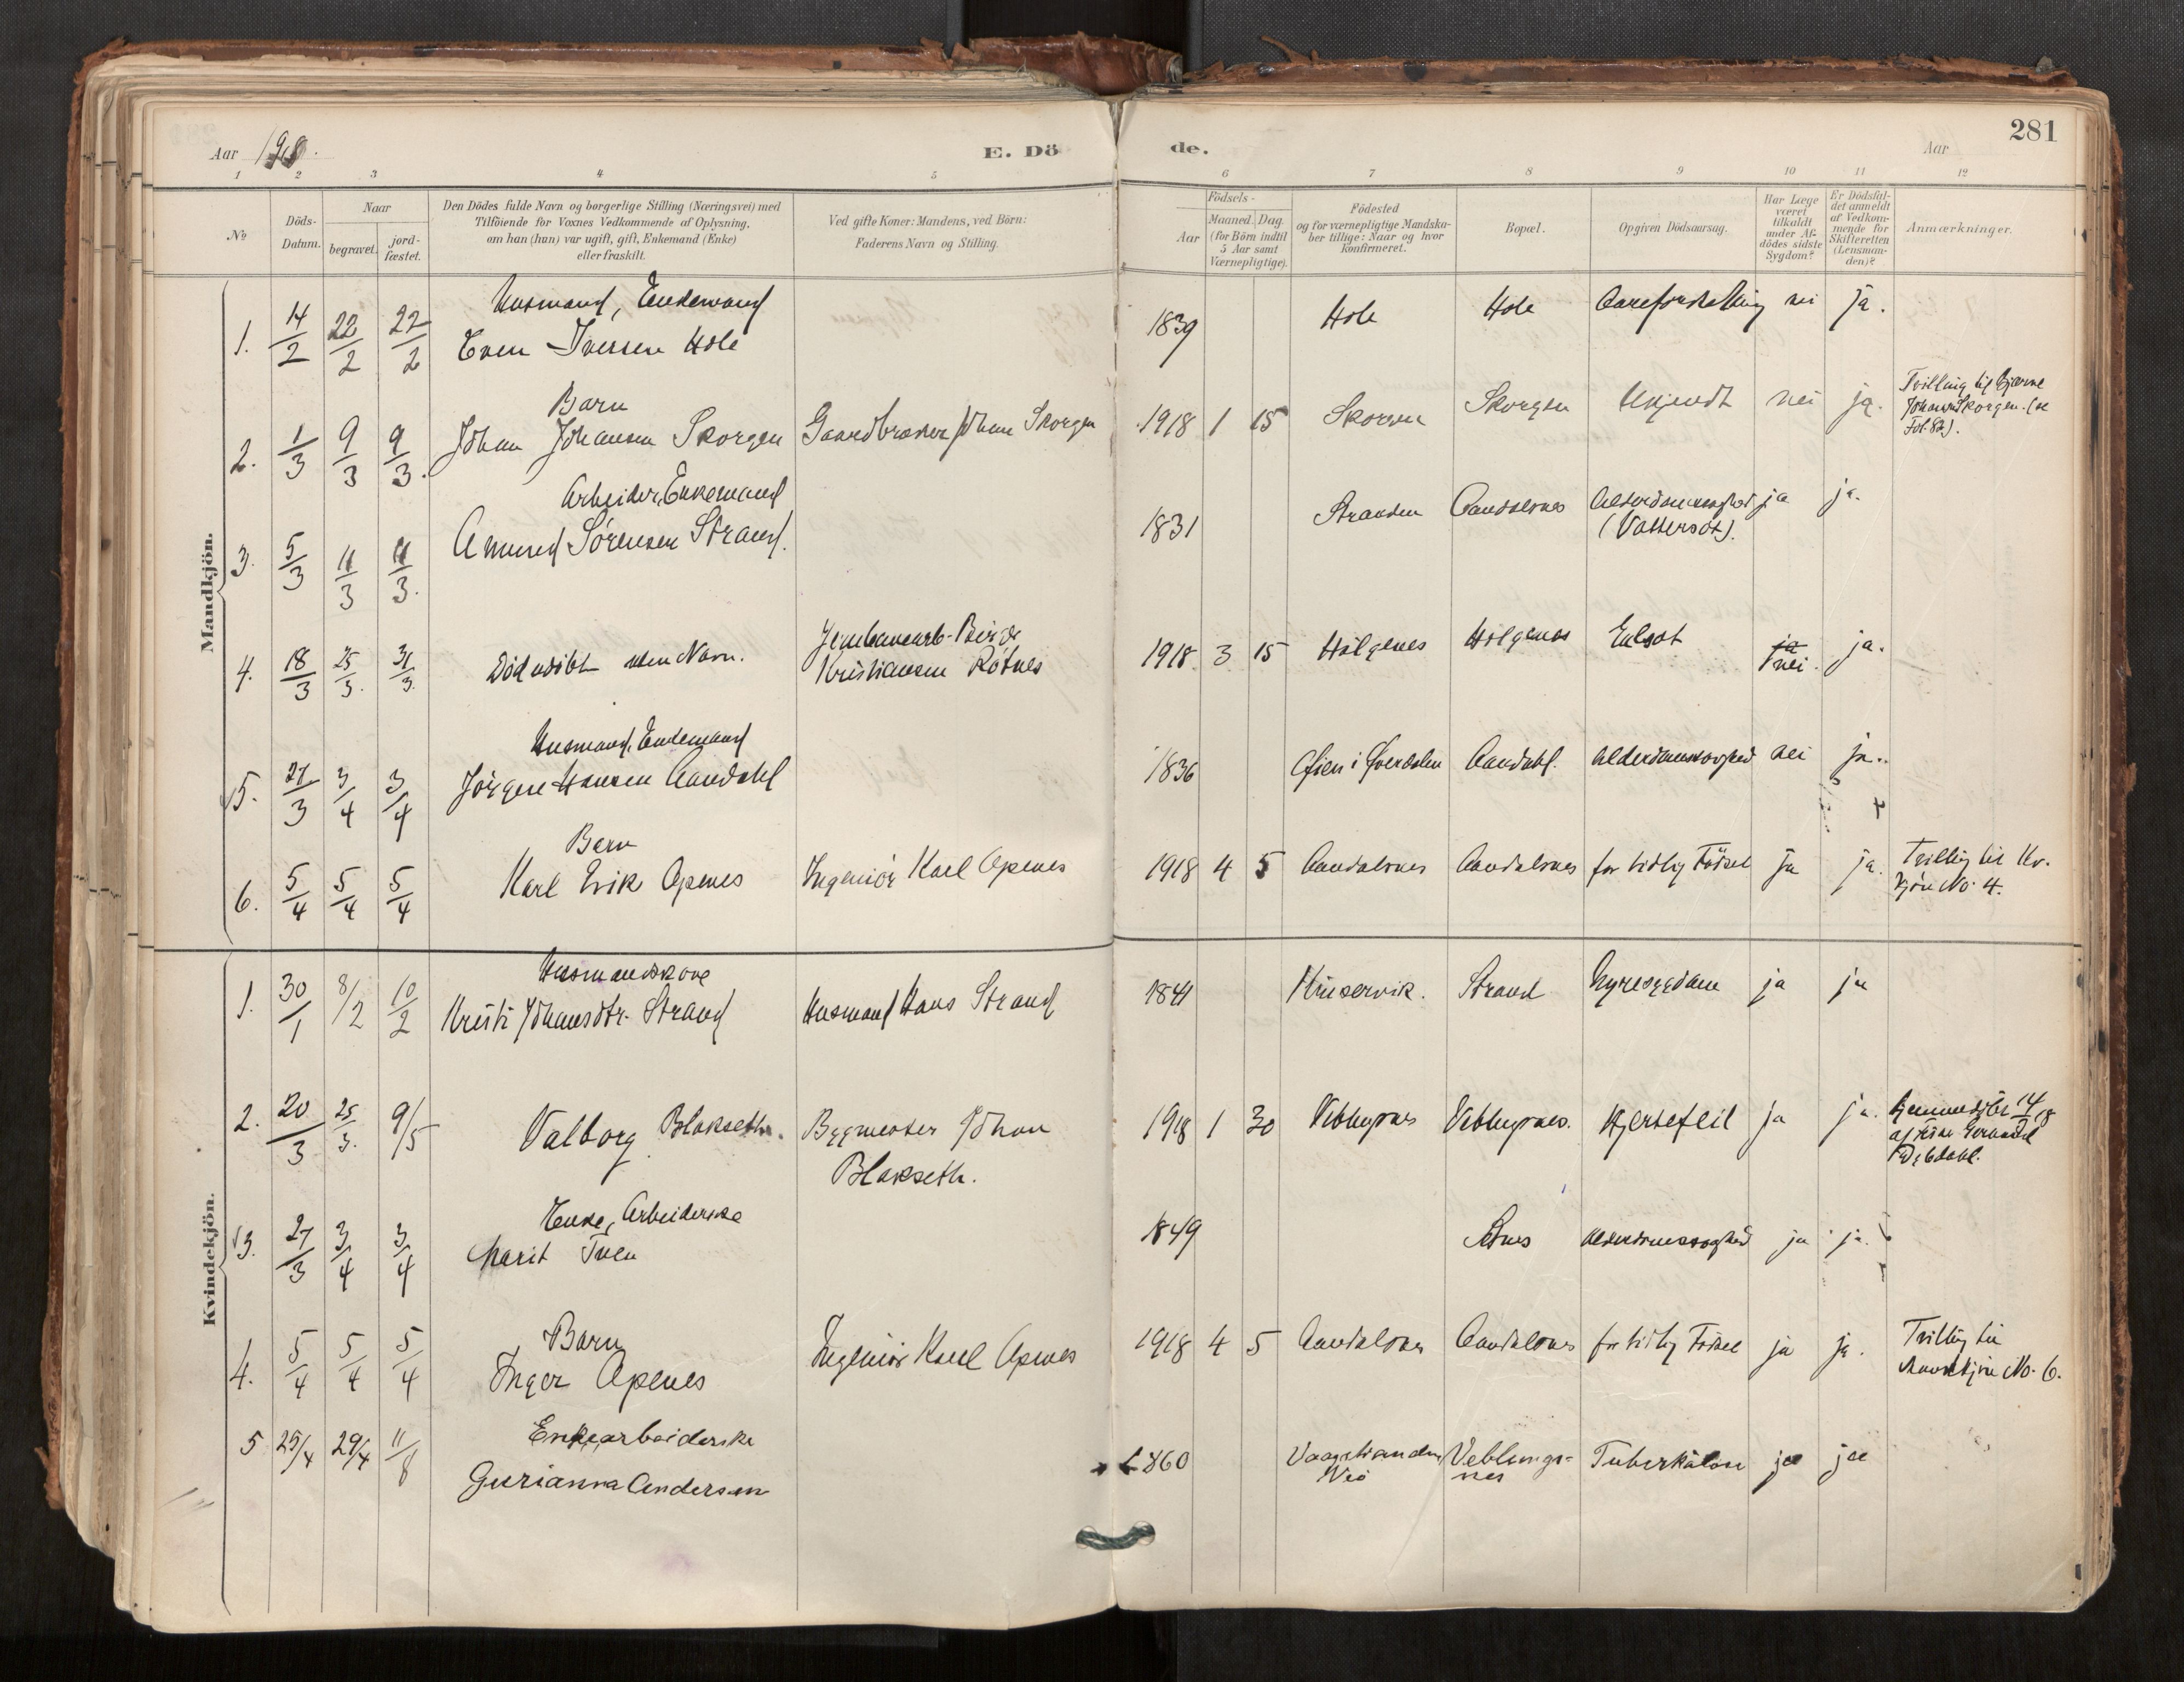 281
Aar 1918.
E. Döde.
Aar
1 2 3 4 5 6 7 8 9 10 11 12
No
Döds-Datum.
Naar
begravet.
jord-fæstet.
Den Dödes fulde Navn og borgerlige Stilling (Næringsvei) med
Tilföiende for Voxnes Vedkommende af Oplysning,
om han (hun) var ugift, gift, Enkemand (Enke)
eller fraskilt.
Ved gifte Koner: Mandens, ved Börn:
Faderens Navn og Stilling.
Födsels-
Aar
Maaned. Dag.
(for Börn indtil
5 Aar samt
Værnepligtige).
Födested
og for værnepligtige Mandska-
ber tillige: Naar og hvor
konfirmeret.
Bopæl.
Opgiven Dödsaarsag.
Har Læge
været
tilkaldt
under Af-
dödes sidste
Sygdom?
Er Dödsfal-
det anmeldt
af Vedkom-
mende for
Skifteretten
(Lensman-
den)?
Anmærkninger.
Mandkjön.
Husmand, Enkemand
1. 14/2 22/2 22/2 Even Iversen Hole 1839 Hole Hole Aareforkalkning nei ja.
Barn
2. 1/3 9/3 9/3. Johan Johansen Skorgen Gaardbruker Johan Skorgen 1918 1 15 Skorgen Skorgen Ukjendt nei ja.
Tvilling til Bjarne
Johansen Skorgen. (se
Fol. 82).
Arbeider, Enkemand
3. 5/3 11/3 11/3. Amund Sørensen Strand. 1831 Stranden Aandalsnes Alderdomssvaghed ja ja.
(Vattersot).
Jernbanearb. Birger
4. 18/3 25/3. 31/3. Död udöbt uden Navn. Kristiansen Rötnes 1918. 3 15 Holgenes Holgenes ja nei. ja.
Husmand, Enkemand
5. 27/3 3/4 3/4 Jörgen Hansen Aandahl 1836 i Øverdalen Aandahl. Alderdomssvaghed nei ja.
Barn
6. 5/4 5/4 5/4 Karl Erik Apenes Ingeniör Karl Apenes 1918 4 5 Aandalsnes Aandalsnes for tidlig Födsel ja ja.
Tvilling til Kv.
kjön No. 4.
Kvindekjön.
Husmandskone
1. 30/1 8/2 10/2 Kristi Johansdtr. Strand Husmand Hans Strand 1841 Strand Nyresygdom ja ja
2. 20/3 25/3. 9/5 Valborg Blakseth. Bygmester Johan
Blakseth.
1918 1 30 Veblugsnes Veblugsnes. Hjertefeil ja ja.
Hjemmedöbt 14/2 18
Enke, Arbeiderske
3. 27/3 3/4 3/4 Marit Tven 1849 Setnes Alderdomssvaghed ja ja.
Barn
4. 5/4 5/4 5/4 Inger Apenes Ingeniör Karl Apenes 1918 4 5 Aandalsnes Aandalsnes for tidlig Födsel ja ja.
Tvilling til
Mandkjön No. 6.
Enkearbeiderske
5 25/4 29/4 11/8 Gurianna Andersen 1860 Vaagstranden Veblungs- Tuberkulose ja ja
Veö nes